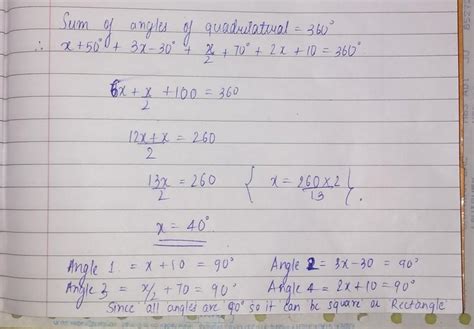 Sum of angles of quadrilateral = 360°
∴ x+50° + 3x-30° + x/2 + 70° + 2x + 10 = 360°
6x + x/2 + 100 = 360
12x+x/2 = 260
13x/2 = 260 { x = 260×2/13 }.
x = 40°
Angle 1 = x + 10 = 90° Angle 2 = 3x-30 = 90°
Angle 3 = x/2 + 70 = 90° Angle 4 = 2x + 10 = 90°
Since all angles are 90° so it can be square or Rectangle